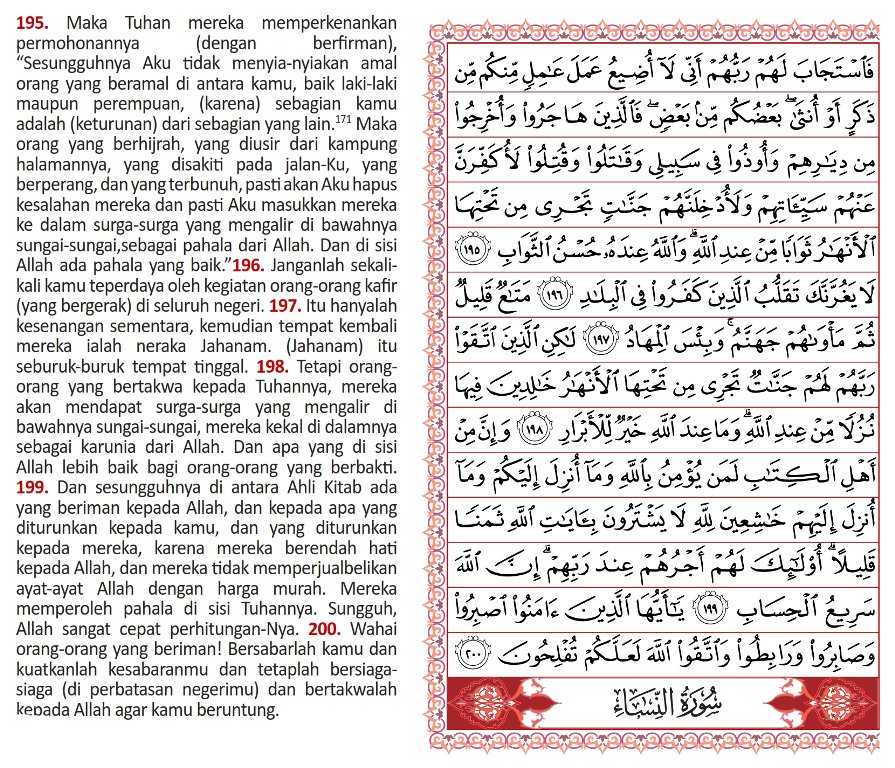 195. Maka Tuhan mereka memperkenankan
permohonannya (dengan berfirman),
“Sesungguhnya Aku tidak menyia-nyiakan amal
orang yang beramal di antara kamu, baik laki-laki
maupun perempuan, (karena) sebagian kamu
adalah (keturunan) dari sebagian yang lain.171 Maka
orang yang berhijrah, yang diusir dari kampung
halamannya, yang disakiti pada jalan-Ku, yang
berperang, dan yang terbunuh, pasti akan Aku hapus
kesalahan mereka dan pasti Aku masukkan mereka
ke dalam surga-surga yang mengalir di bawahnya
sungai-sungai,sebagai pahala dari Allah. Dan di sisi
Allah ada pahala yang baik.”196. Janganlah sekali-
kali kamu teperdaya oleh kegiatan orang-orang kafir
(yang bergerak) di seluruh negeri. 197. Itu hanyalah
kesenangan sementara, kemudian tempat kembali
mereka ialah neraka Jahanam. (Jahanam) itu
seburuk-buruk tempat tinggal. 198. Tetapi orang-
orang yang bertakwa kepada Tuhannya, mereka
akan mendapat surga-surga yang mengalir di
bawahnya sungai-sungai, mereka kekal di dalamnya
sebagai karunia dari Allah. Dan apa yang di sisi
Allah lebih baik bagi orang-orang yang berbakti.
199. Dan sesungguhnya di antara Ahli Kitab ada
yang beriman kepada Allah, dan kepada apa yang
diturunkan kepada kamu, dan yang diturunkan
kepada mereka, karena mereka berendah hati
kepada Allah, dan mereka tidak memperjualbelikan
ayat-ayat Allah dengan harga murah. Mereka
memperoleh pahala di sisi Tuhannya. Sungguh,
Allah sangat cepat perhitungan-Nya. 200. Wahai
orang-orang yang beriman! Bersabarlah kamu dan
kuatkanlah kesabaranmu dan tetaplah bersiaga-
siaga (di perbatasan negerimu) dan bertakwalah
kepada Allah agar kamu beruntung.
فَٱسْتَجَابَ لَهُمْ رَبُّهُمْ أَنِّى لَآ أُضِيعُ عَمَلَ عَـٰمِلٍ مِّنكُم مِّن
ذَكَرٍ أَوْ أُنثَىٰ ۖ بَعْضُكُم مِّنۢ بَعْضٍ ۖ فَٱلَّذِينَ هَاجَرُوا۟ وَأُخْرِجُوا۟
مِن دِيَـٰرِهِمْ وَأُوذُوا۟ فِى سَبِيلِى وَقَـٰتَلُوا۟ وَقُتِلُوا۟ لَأُكَفِّرَنَّ
عَنْهُمْ سَيِّـَٔاتِهِمْ وَلَأُدْخِلَنَّهُمْ جَنَّـٰتٍ تَجْرِى مِن تَحْتِهَا
ٱلْأَنْهَـٰرُ ثَوَابًا مِّنْ عِندِ ٱللَّهِ ۗ وَٱللَّهُ عِندَهُۥ حُسْنُ ٱلثَّوَابِ ١٩٥
لَا يَغُرَّنَّكَ تَقَلُّبُ ٱلَّذِينَ كَفَرُوا۟ فِى ٱلْبِلَـٰدِ ١٩٦ مَتَـٰعٌ قَلِيلٌ
ثُمَّ مَأْوَىٰهُمْ جَهَنَّمُ ۚ وَبِئْسَ ٱلْمِهَادُ ١٩٧ لَـٰكِنِ ٱلَّذِينَ ٱتَّقَوْا۟
رَبَّهُمْ لَهُمْ جَنَّـٰتٌ تَجْرِى مِن تَحْتِهَا ٱلْأَنْهَـٰرُ خَـٰلِدِينَ فِيهَا
نُزُلًا مِّنْ عِندِ ٱللَّهِ ۗ وَمَا عِندَ ٱللَّهِ خَيْرٌ لِّلْأَبْرَارِ ١٩٨ وَإِنَّ مِنْ
أَهْلِ ٱلْكِتَـٰبِ لَمَن يُؤْمِنُ بِٱللَّهِ وَمَآ أُنزِلَ إِلَيْكُمْ وَمَآ
أُنزِلَ إِلَيْهِمْ خَـٰشِعِينَ لِلَّهِ لَا يَشْتَرُونَ بِـَٔايَـٰتِ ٱللَّهِ ثَمَنًا
قَلِيلًا ۗ أُو۟لَـٰٓئِكَ لَهُمْ أَجْرُهُمْ عِندَ رَبِّهِمْ ۗ إِنَّ ٱللَّهَ
سَرِيعُ ٱلْحِسَابِ ١٩٩ يَـٰٓأَيُّهَا ٱلَّذِينَ ءَامَنُوا۟ ٱصْبِرُوا۟
وَصَابِرُوا۟ وَرَابِطُوا۟ وَٱتَّقُوا۟ ٱللَّهَ لَعَلَّكُمْ تُفْلِحُونَ ٢٠٠
سُورَةُ النِّسَاءِ